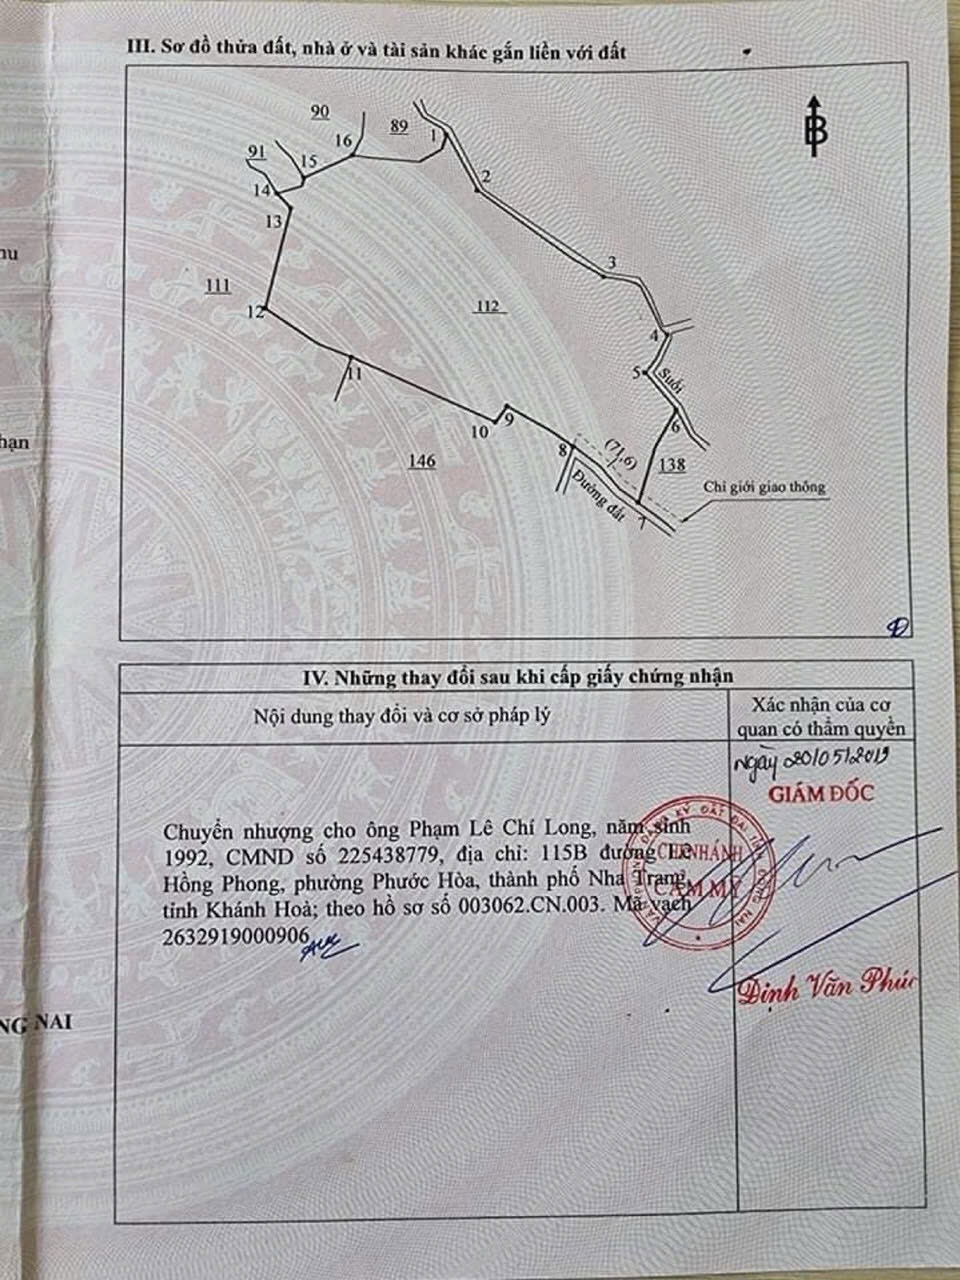 III. Sơ đồ thửa đất, nhà ở và tài sản khác gắn liền với đất
90
89
1
16
91
15
B
14
2
13
111
3
12
112
4
11
5
Suối
9
6
10
8
(71,6)
146
138
Đường đất
7
Chỉ giới giao thông
IV. Những thay đổi sau khi cấp giấy chứng nhận
Nội dung thay đổi và cơ sở pháp lý
Xác nhận của cơ
quan có thẩm quyền
Ngày 20/05/2019
GIÁM ĐỐC
Chuyển nhượng cho ông Phạm Lê Chí Long, năm sinh
1992, CMND số 225438779, địa chỉ: 115B đường Lê
Hồng Phong, phường Phước Hòa, thành phố Nha Trang,
tỉnh Khánh Hoà; theo hồ sơ số 003062.CN.003. Mã vạch
2632919000906
CHI NHÁNH
CẨM MỸ
Định Văn Phúc
NG NAI